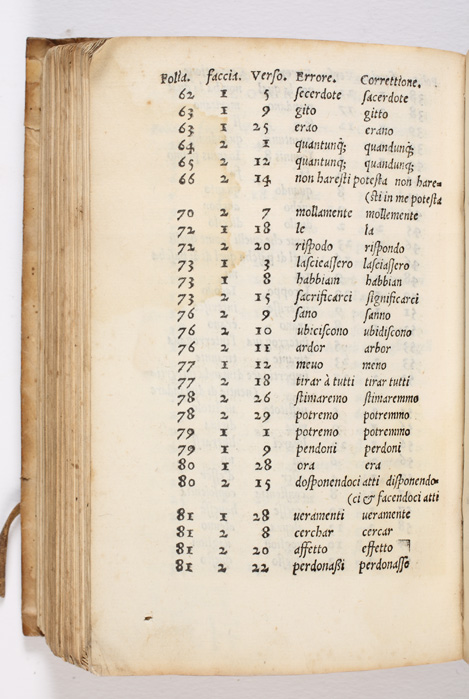 Folia. faccia. Verso. Errore. Correttione.
62 1 5 sccerdote sacerdote
63 1 9 gito gitto
63 1 25 erao erano
64 2 1 quantunq; quandunq;
65 2 12 quantunq; quandunq;
66 2 14 non haresti potesta non hare=
(sti in me potesta
70 2 7 mollamente mollemente
72 1 18 le la
72 2 20 rispodo rispondo
73 1 3 lascicassero lasciassero
73 1 8 habbiam habbian
73 2 15 sacrificarci significarci
76 2 9 sano sanno
76 2 10 ubiciscono ubidiscono
76 2 11 ardor arbor
77 1 12 meuo meno
77 2 18 tirar à tutti tirar tutti
78 2 26 stimaremo stimaremmo
78 2 29 potremo potremmo
79 1 1 potremo potremmo
79 1 9 pendoni perdoni
80 1 28 ora era
80 2 15 dosponendoci atti disponendo=
(ci & facendoci atti
81 1 28 ueramenti ueramente
81 2 8 cerchar cercar
81 2 20 affetto effetto
81 2 22 perdonaßi perdonasse